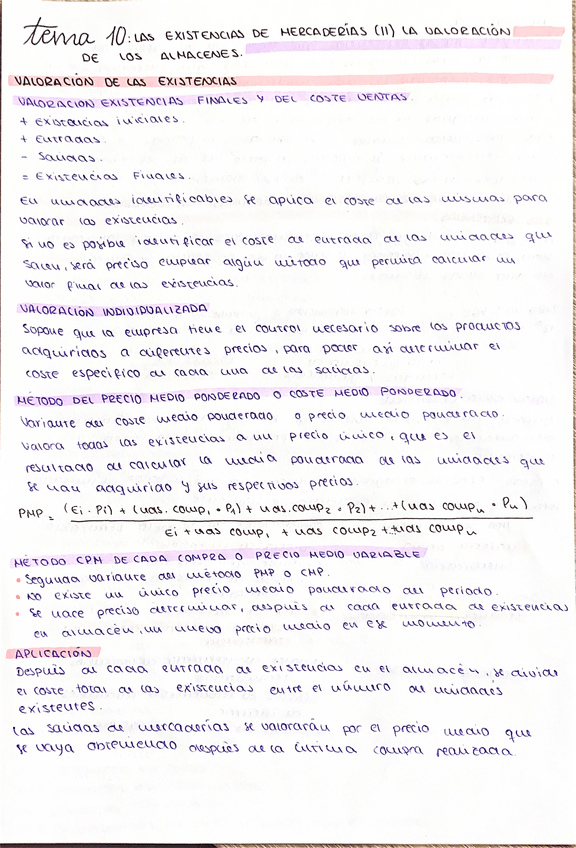 tema 10: LAS EXISTENCIAS DE MERCADERÍAS (II) LA VALORACIÓN
DE LOS ALMACENES.
VALORACIÓN DE LAS EXISTENCIAS
VALORACIÓN EXISTENCIAS FINALES Y DEL COSTE VENTAS.
+ Existencias iniciales.
+ Entradas.
- Salidas.
= Existencias Finales.
En unidades identificables se aplica el coste de las mismas para
valorar las existencias.
Si no es posible identificar el coste de entrada de las unidades que
salen, será preciso emplear algún método que permita calcular un
valor final de las existencias.
VALORACIÓN INDIVIDUALIZADA
Supone que la empresa tiene el control necesario sobre los productos
adquiridos a diferentes precios, para poder así determinar el
coste específico de cada una de las salidas.
MÉTODO DEL PRECIO MEDIO PONDERADO O COSTE MEDIO PONDERADO.
Variante del coste medio ponderado o precio medio ponderado.
Valora todas las existencias a un precio único, que es el
resultado de calcular la media ponderada de las unidades que
se han adquirido y sus respectivos precios.
PMP = (Ei · Pi) + (uds. comp₁ · P₁) + uds. comp₂ · P₂) + ... + (uds compₙ · Pₙ)
Ei + uds comp₁ + uds comp₂ + ... uds compₙ
MÉTODO CPM DE CADA COMPRA O PRECIO MEDIO VARIABLE
• Segunda variante del método PMP o CMP.
• No existe un único precio medio ponderado del periodo.
• Se hace preciso determinar, después de cada entrada de existencias
en almacén, un nuevo precio medio en ese momento.
APLICACIÓN
Después de cada entrada de existencias en el almacén, se divide
el coste total de las existencias entre el número de unidades
existentes.
Las salidas de mercaderías se valorarán por el precio medio que
se vaya obteniendo después de la última compra realizada.